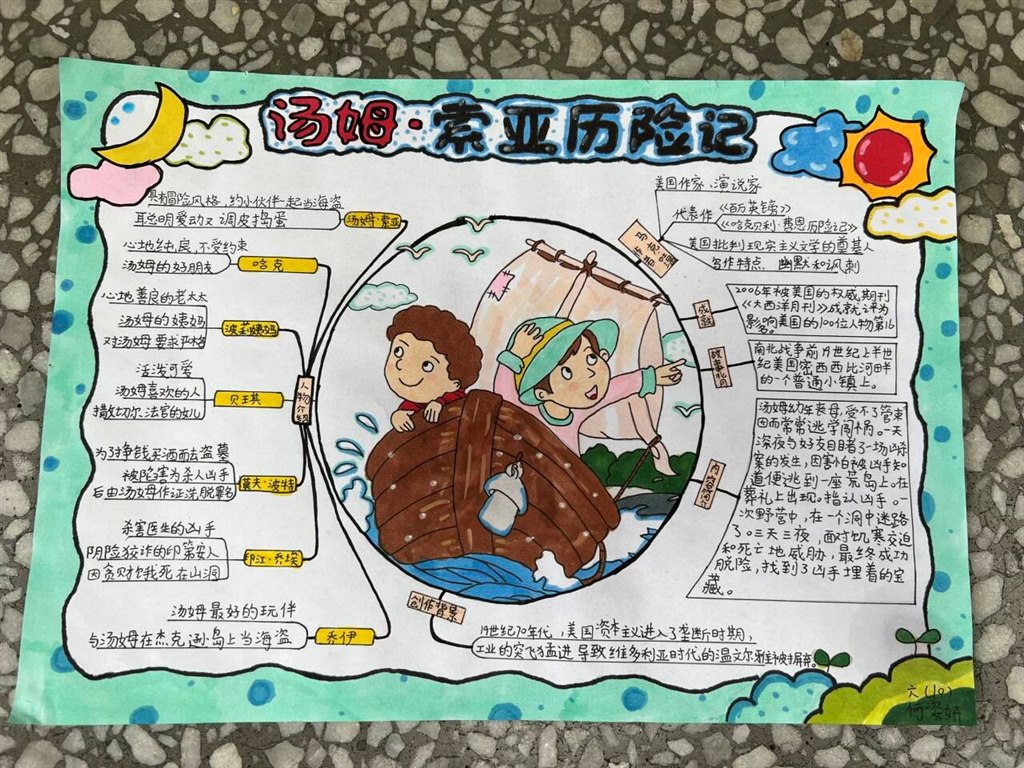 汤姆·索亚历险记
具有冒险风格，约小伙伴一起当海盗
聪明爱动又调皮捣蛋
汤姆·索亚
心地纯良，不受约束
汤姆的好朋友
哈克
心地善良的老太太
汤姆的姨妈
对汤姆要求严格
波莉姨妈
活泼可爱
汤姆喜欢的人
撒切尔法官的女儿
贝琪
为了挣钱买酒而去盗墓
被陷害为杀人凶手
后由汤姆作证洗脱罪名
莫夫·波特
杀害医生的凶手
阴险狡诈的印第安人
因贪财饿死在山洞
印江·乔埃
汤姆最好的玩伴
与汤姆在杰克逊岛上当海盗
乔伊
人物介绍
美国作家、演说家
代表作《百万英镑》
《哈克贝利·费恩历险记》
美国批判现实主义文学的奠基人
写作特点 幽默和讽刺
作者
成就
2006年被美国的权威期刊
《大西洋月刊》成就评为
影响美国的100位人物第16
名。
故事
南北战争前19世纪上半世
纪美国密西西比河畔
的一个普通小镇上。
内容简介
汤姆幼年丧母，受不了管束
因而常常逃学闯祸。一天
深夜与好友目睹了一场凶杀
案的发生，因害怕被凶手知
道便逃到一座荒岛上。在
葬礼上出现。指认凶手。一
次野营中，在一个洞中迷路
了。三天三夜，面对饥寒交迫
和死亡地威胁，最终成功
脱险，找到了凶手埋着的宝
藏。
创作背景
19世纪70年代，美国资本主义进入了垄断时期，
工业的突飞猛进导致维多利亚时代的温文尔雅被摒弃。
六(10)
何姿妍